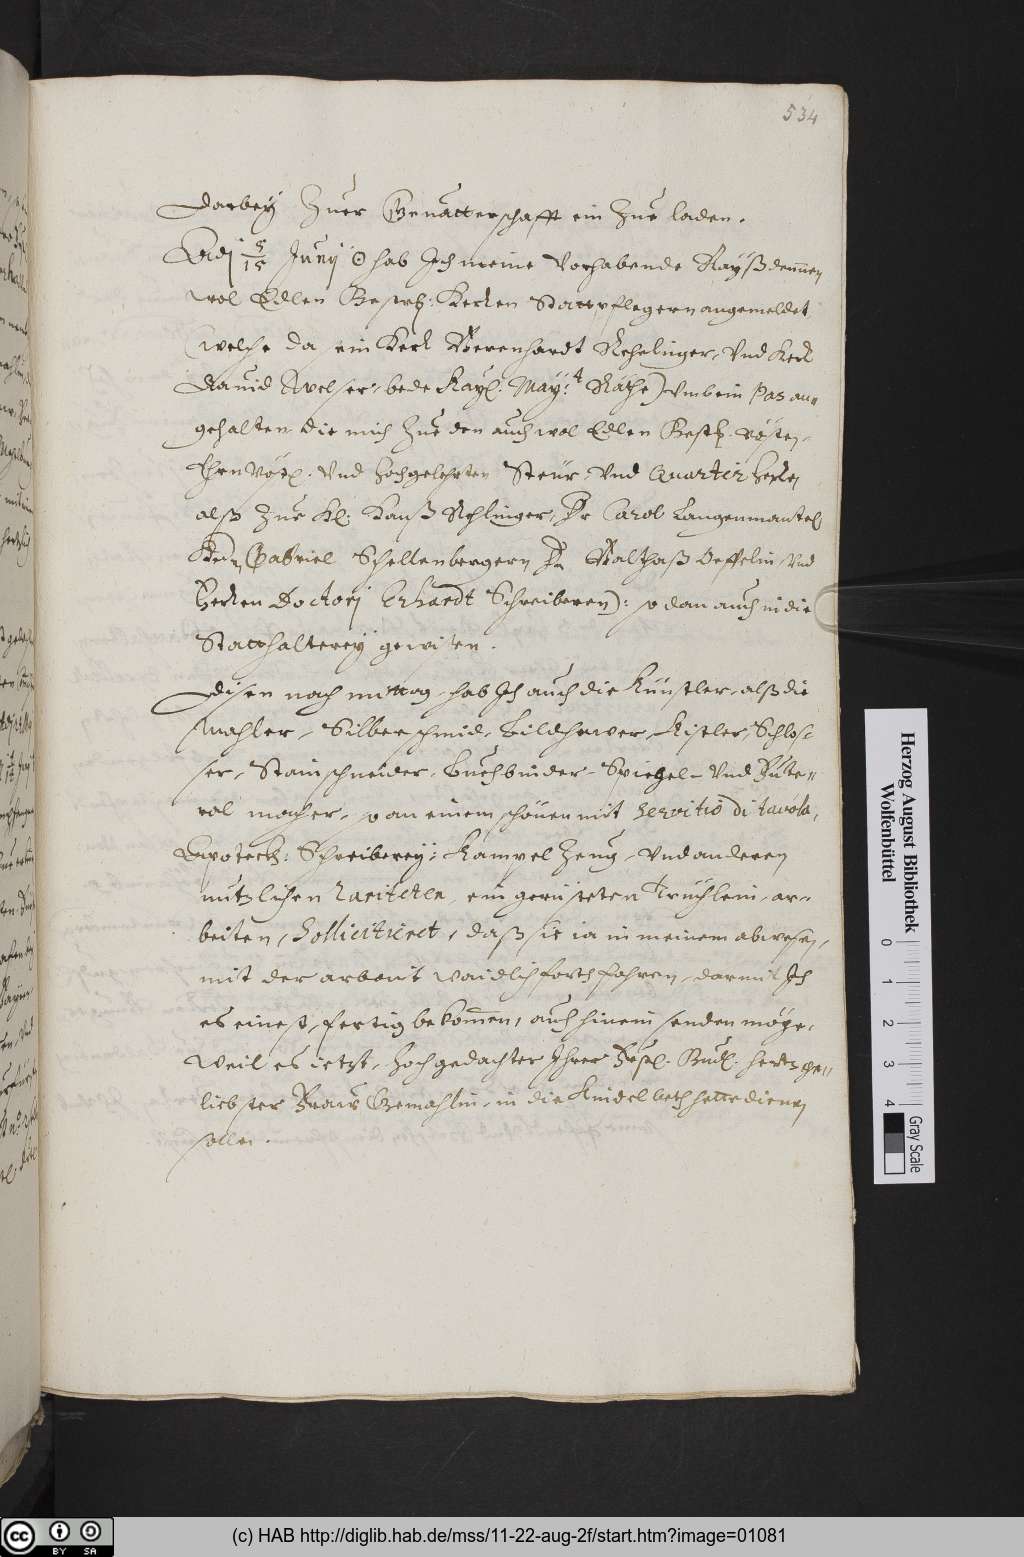 534
darbey Zuer Gevatterschafft ein Zue laden.
Adj 5/15 Junij ☉ hab Ich meine Vorhabende Rayß dennen
wol Edlen Gestr: Herren Stattpflegern angemeldet
(welche da ein Herr Berenhardt Rehelinger, Vnd Herr
Dauid Welser, bede Kayl: May:t Räthe) vmb ein Pas an=
gehalten die mich Zue den auch wol Edlen Gestr. vösten,
Ehrnvöst. Vnd Hochgelehrten Steür, Vnd Quartir Herren
alß Zue Hl: Hanß Rehlinger, Hr Carol Langenmantel
Hern Gabriel Schellenbergern Hn Balthaß Oeffelin, Vnd
Herren Doctorj Erhardt Schreiberen): so dan auch in die
Statthalterey gewisen.
Disen nach mittag, hab Ich auch die Künstler, alß die
Mahler, Silberschmid, Bildhawer, Kistler, Schlos=
ser, Stainschneider, Buchbinder, Spiegel- Vnd Fute=
ral macher, so an einem schönen mit servitio di tavola,
Apoteckh: Schreiberey: Kampel Zeug, Vnd anderen
nutzlichen Rariteten, ein gerüsteten Trüchlein, ar=
beiten, Sollicitieret, daß sie ia in meinem abwesen,
mit der arbeit waidlich forth fahren, darmit Ich
es einest, fertig bekom̄en, auch hinein senden möge,
Weil es ietzt, Hochgedachter Ihrer Fürstl. Gnd. hertz ge=
liebster Fraw Gemahlin, in die Kindelbeth hette dienen
sollen.
Herzog August Bibliothek
Wolfenbüttel
0 1 2 3 4
Gray Scale
cc BY SA
(c) HAB http://diglib.hab.de/mss/11-22-aug-2f/start.htm?image=01081